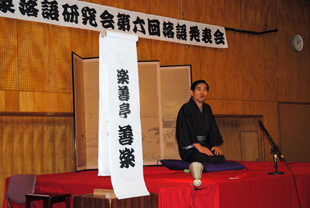 家落語研究会第六回落語発表会
楽善亭 善楽